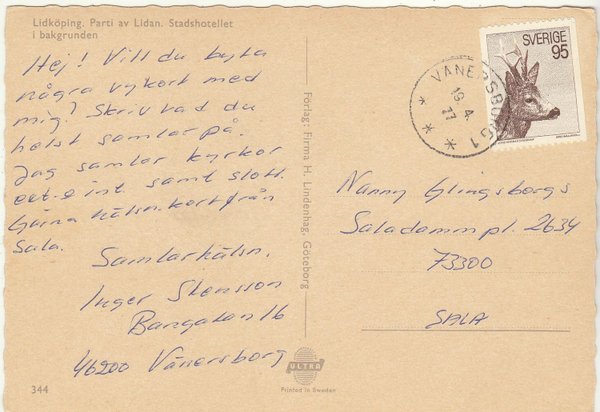 Lidköping. Parti av Lidan. Stadshotellet
i bakgrunden
Hej! Vill du byta
några vykort med
mig? Skriv vad du
helst samlar på.
Jag samlar kyrkor
ext. o int samt slott.
Gärna hälsn.kort från
Sala.
Samlarhälsn.
Inger Stensson
Bangatan 16
46200 Vänersborg
344
Förlag: Firma H. Lindenhag, Göteborg
ULTRA
Printed in Sweden
SVERIGE
95
VÄNERSBORG 1
19.4.
77
Nanny Glingsbergs
Saladammpl. 2634
73300
SALA